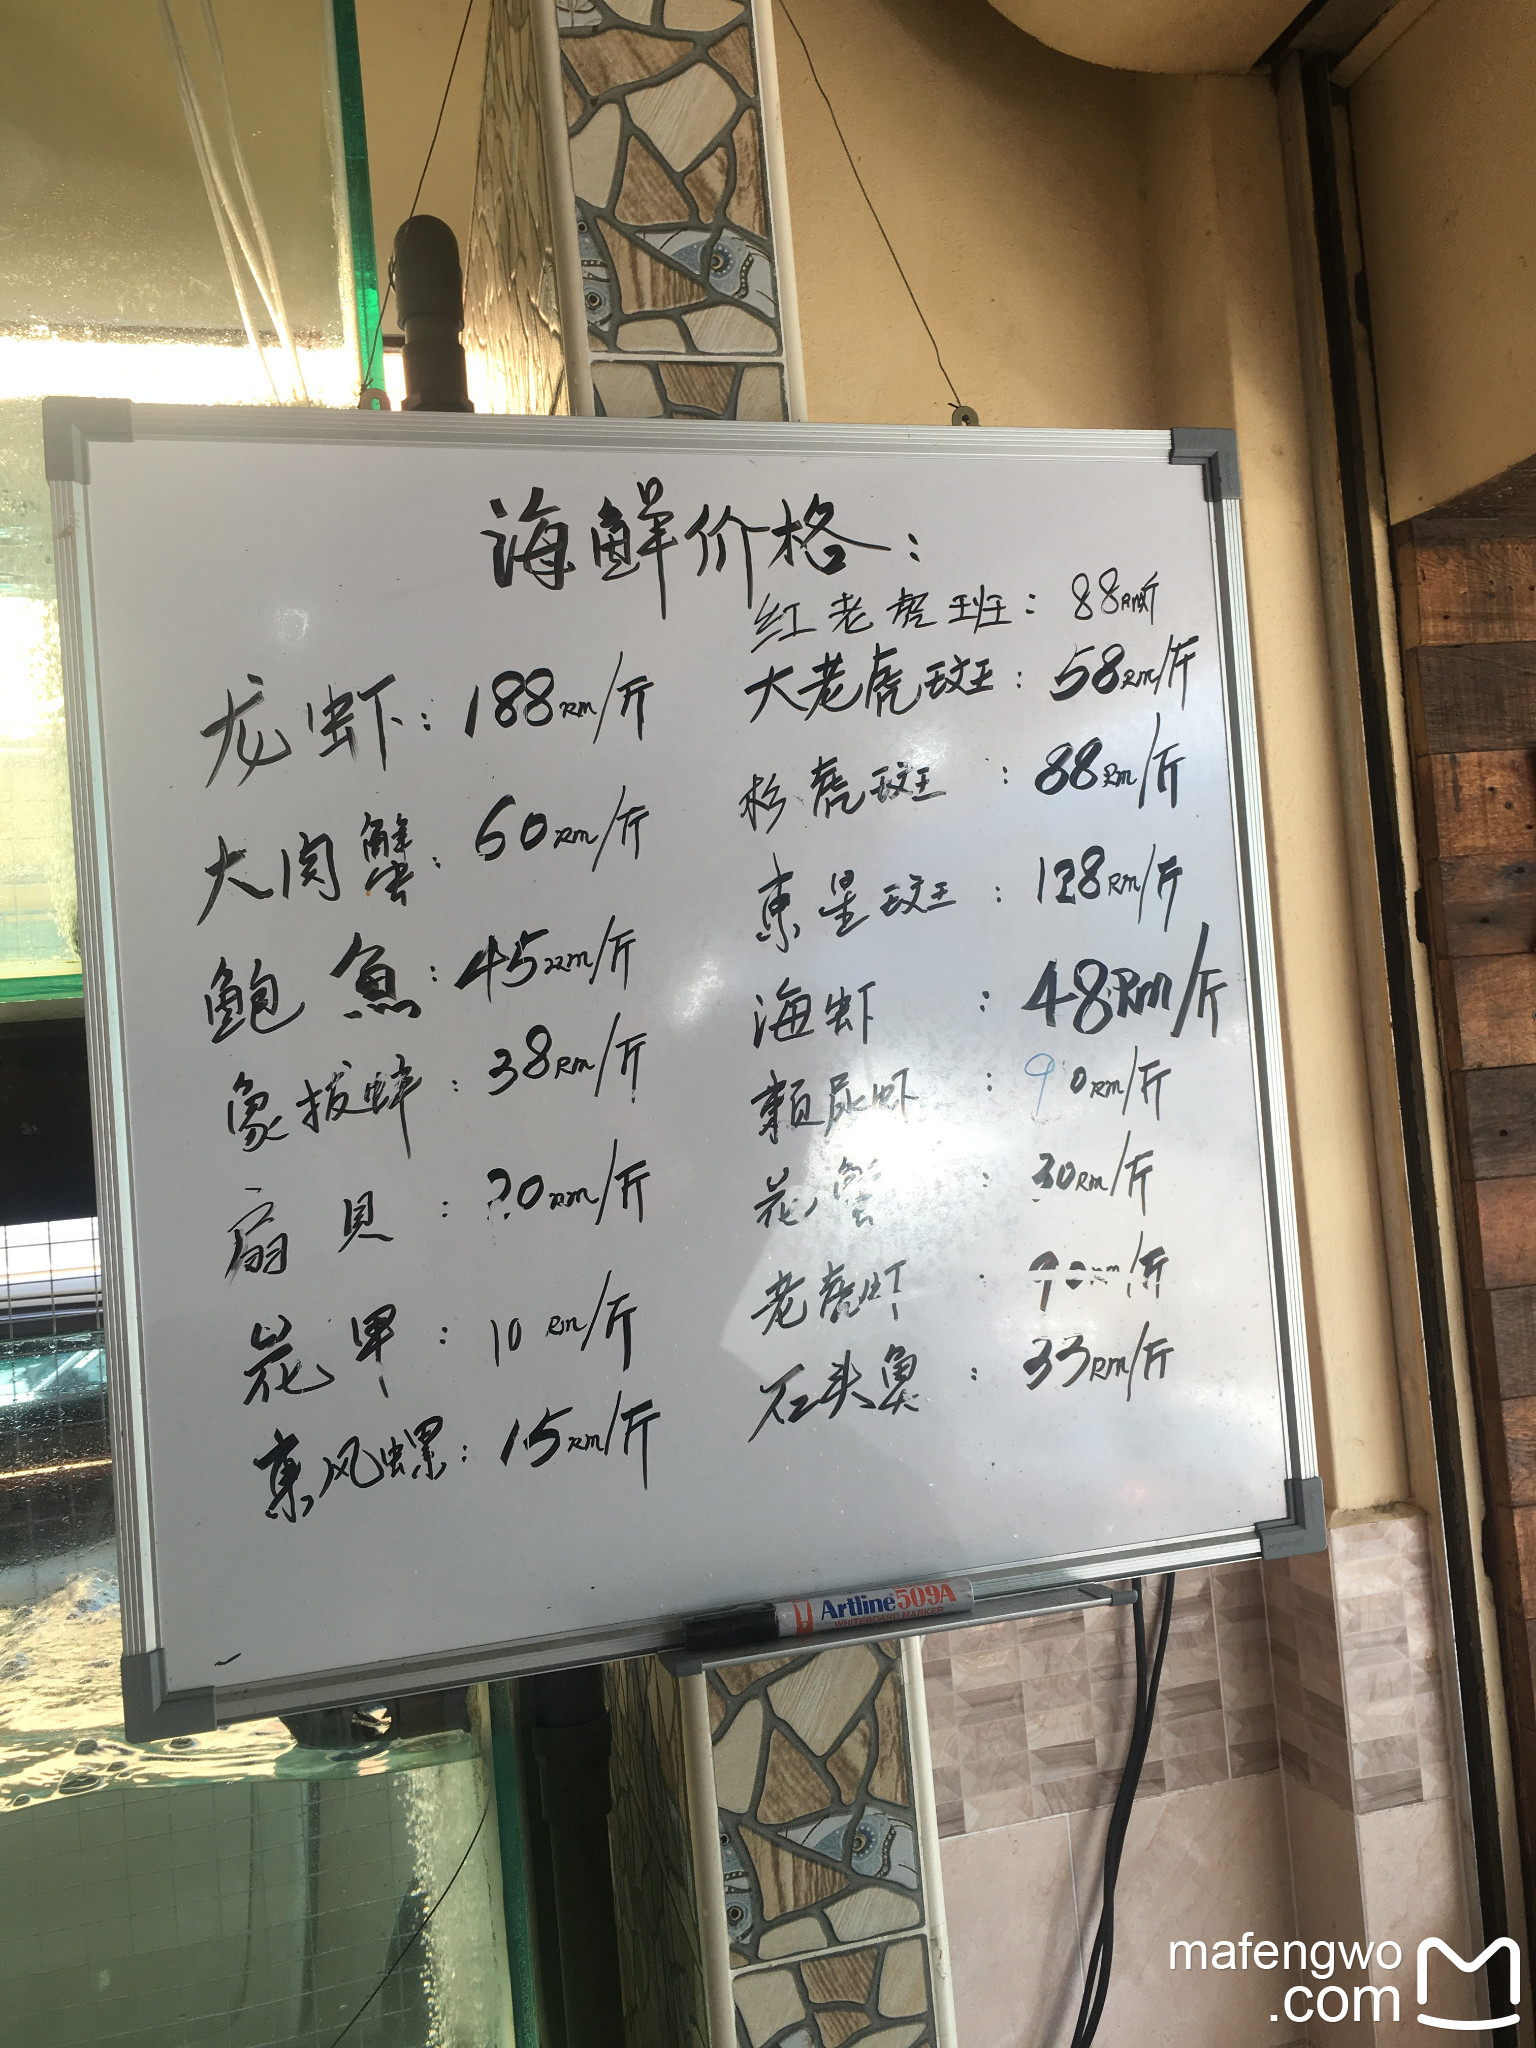 海鲜价格:
龙虾:188RM/斤
大肉蟹:60RM/斤
鲍魚:45RM/斤
象拔蚌:38RM/斤
扇贝:20RM/斤
花甲:10RM/斤
東风螺:15RM/斤
红老虎班:88RM/斤
大老虎斑:58RM/斤
杉虎斑:88RM/斤
東星斑:128RM/斤
海虾:48RM/斤
賴尿虾:90RM/斤
花蟹:30RM/斤
老虎虾:90RM/斤
石头魚:33RM/斤
Artline 509A
WHITEBOARD MARKER
mafengwo
.com